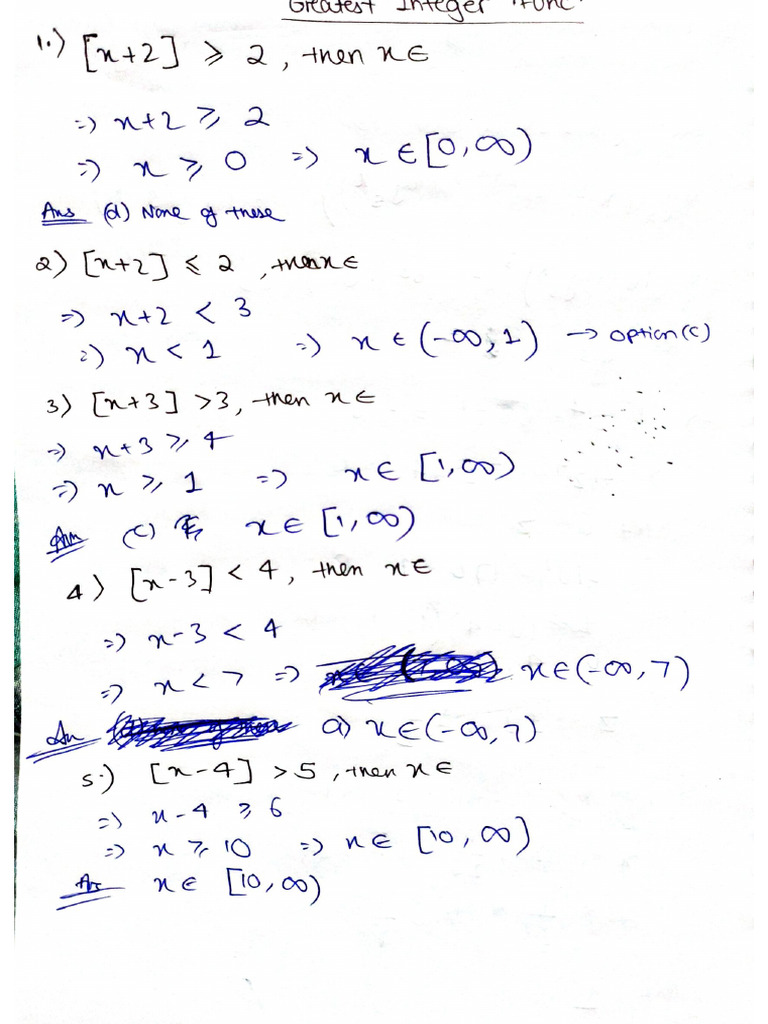 Greatest Integer Func
1.) [x+2] ⩾ 2, then x∈
=) x+2 ⩾ 2
=) x ⩾ 0 =) x ∈ [0,∞)
Ans (d) None of these
2) [x+2] ⩽ 2, then x∈
=) x+2 < 3
=) x < 1 =) x ∈ (-∞,1) → option (c)
3) [x+3] >3, then x∈
=) x+3 ⩾ 4
=) x ⩾ 1 =) x∈ [1,∞)
Ans (c) x∈ [1,∞)
4) [x-3] < 4, then x∈
=) x-3 < 4
=) x < 7 =) x∈(-∞,7)
An a) x∈(-∞,7)
5.) [x-4] >5, then x∈
=) x-4 ⩾ 6
=) x ⩾ 10 =) x∈ [10,∞)
Ans x∈ [10,∞)